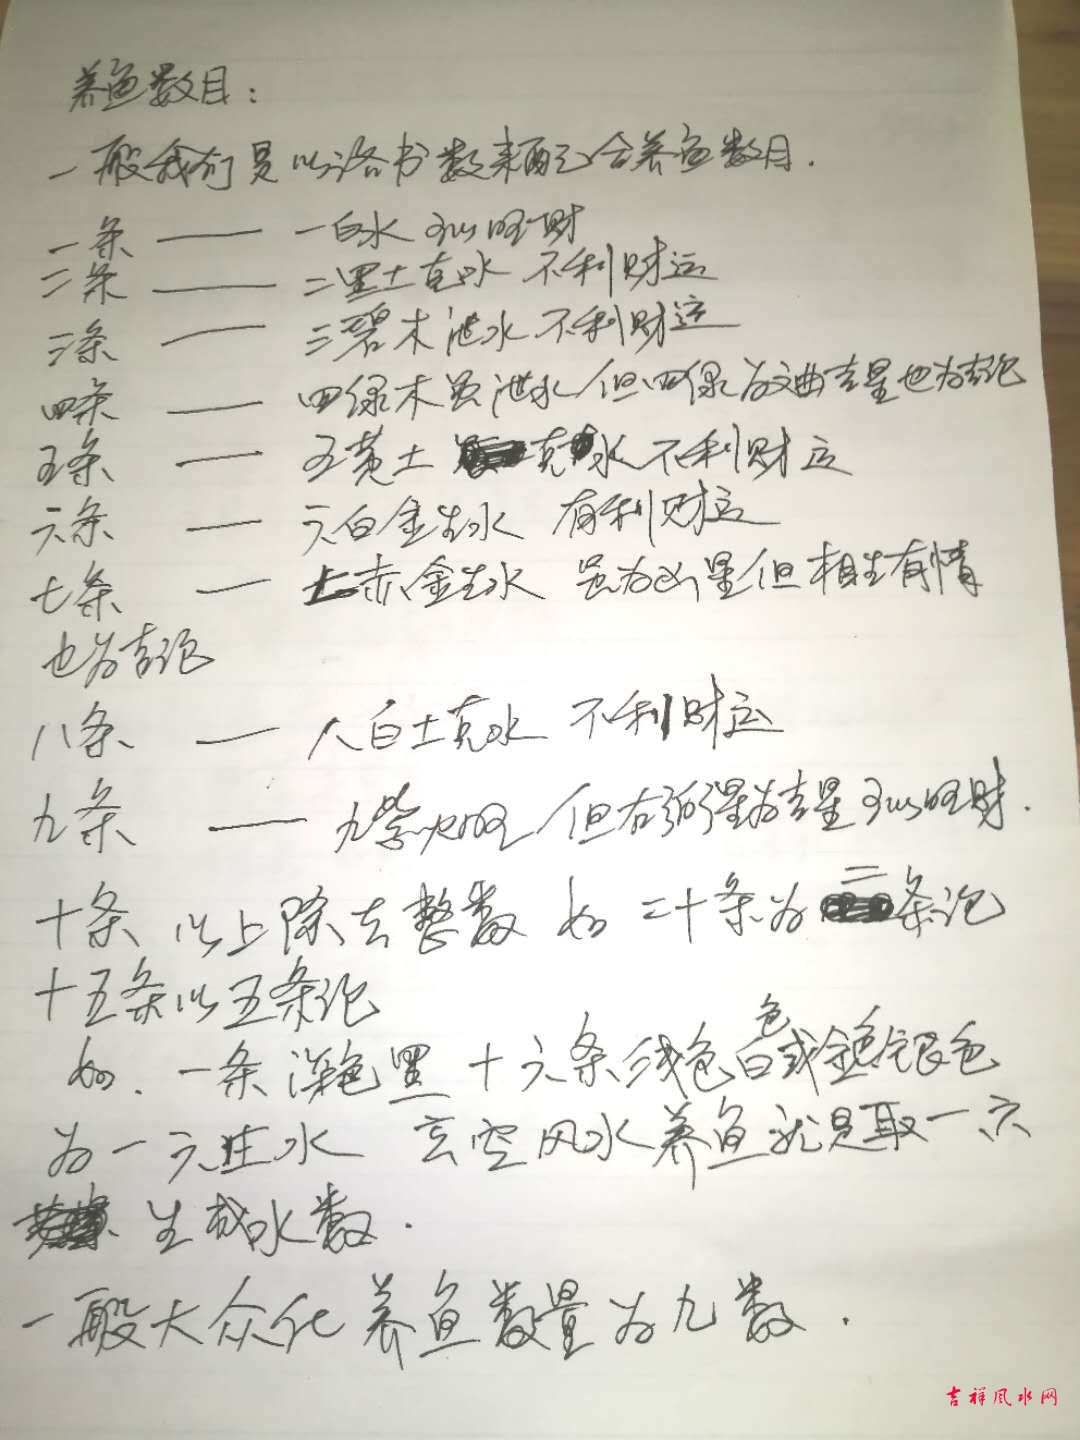 养鱼数目：
一般我们是以洛书数来配合养鱼数目.
一条 —— 一白水 可以旺财
二条 —— 二黑土克水 不利财运
三条 —— 三碧木泄水 不利财运
四条 —— 四绿木虽泄水 但四绿为文曲吉星也为吉论
五条 —— 五黄土 克水 不利财运
六条 —— 六白金生水 有利财运
七条 —— 七赤金生水 虽为凶星但相生有情
也为吉论
八条 —— 八白土克水 不利财运
九条 —— 九紫火旺 但右弼星为吉星可以旺财.
十条 以上除去整数 如 二十条为二条论
十五条以五条论
如. 一条深色黑 十六条浅色白色或金色银色
为一六生水 玄空风水养鱼就是取一六
生成水数.
一般大众化养鱼数量为九数.
吉祥风水网